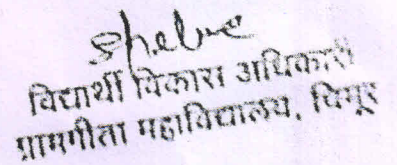 विद्यार्थी विकास अधिकारी
ग्रामगीता महाविद्यालय, चिमूर